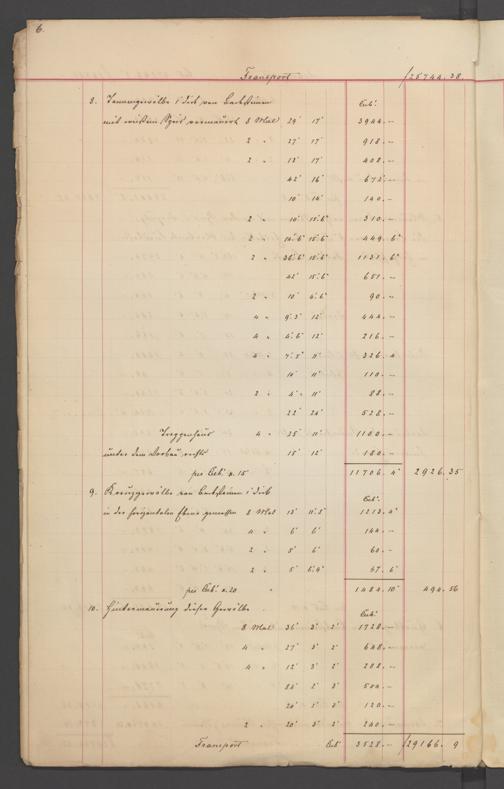 6.
Transport /25744.38.
8. Tonnengewölbe 1' dick von Backsteinen Cub.'
mit weissem Speis vermauert 8 Mal 29' 17' 3944.–
2 " 27' 17' 918.–
2 " 12' 17' 408.–
42' 16' 672.–
10' 14' 140.–
2 " 10' 15.6" 310.–
2 " 14.6" 15.6" 449.6"
2 " 36.6" 15.6" 1131.6"
42' 15.6" 651.–
2 " 10' 4.6" 90.–
4 " 9.3" 12' 444.–
4 " 4.6" 12' 216.–
4 " 7.5" 11' 326.4
10' 11' 110.–
2 " 4' 11' 88.–
22' 24' 528.–
Treppenhaus 4 " 25' 11' 1100.–
unter dem Vorbau rechts 15' 12' 180.–
per Cub.' x. 15 11706.4" 2926.35
9. Kreuzgewölbe von Backsteinen 1' dick Cub.'
in der horizontalen Ebene gemessen 8 Mal 13' 1213.4"
4 " 6' 6' 144.–
2 " 5' 6' 60.–
2 " 5' 67.6"
per Cub.' x. 20 1484.10" 494.56
10. Hintermauerung dieser Gewölbe Cub.'
8 Mal 36' 3' 2' 1728.–
4 " 27' 3' 2' 648.–
4 " 12' 3' 2' 288.–
84' 2' 3' 504.–
20' 2' 3' 120.–
2 " 20' 3' 2' 240.–
Transport Cub.' 3528.– /29166.9